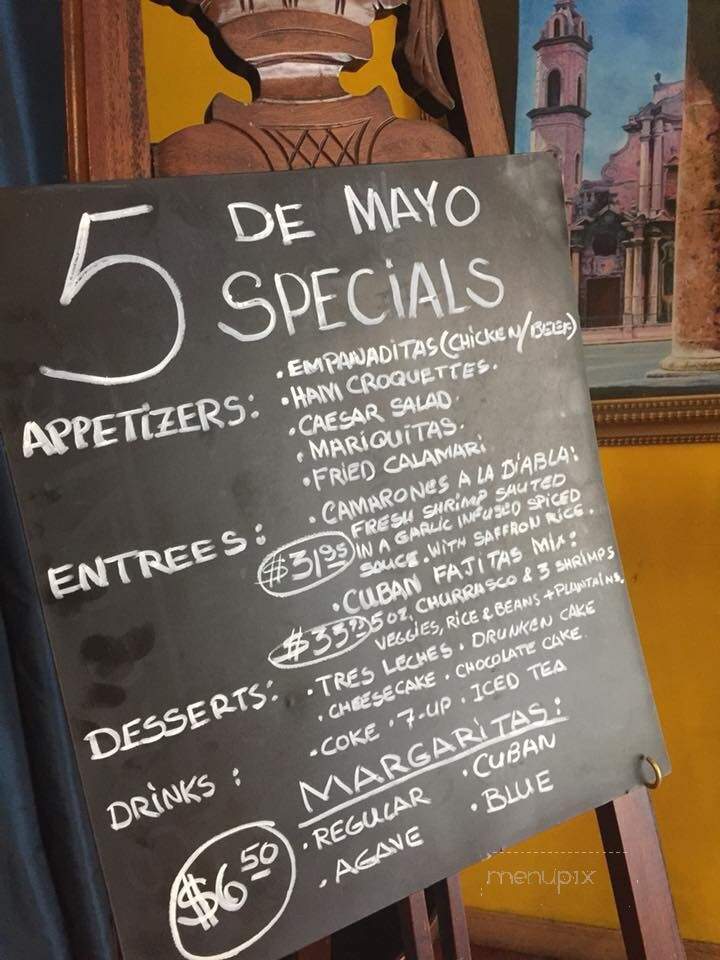 5 DE MAYO
SPECIALS
APPETIZERS: · EMPANADITAS (CHICKEN/BEEF)
· HAM CROQUETTES.
· CAESAR SALAD.
· MARIQUITAS.
· FRIED CALAMARI
ENTREES: · CAMARONES A LA DIABLA:
FRESH SHRIMP SAUTED
$31.95 IN A GARLIC INFUSED SPICED
SAUCE. WITH SAFFRON RICE.
· CUBAN FAJITAS MIX:
$33.95 5 OZ. CHURRASCO & 3 SHRIMPS
VEGGIES, RICE & BEANS + PLANTAINS.
DESSERTS: · TRES LECHES · DRUNKEN CAKE
· CHEESECAKE · CHOCOLATE CAKE
DRINKS: · COKE · 7-UP · ICED TEA
MARGARITAS:
· REGULAR · CUBAN
$6.50 · AGAVE · BLUE
menupix